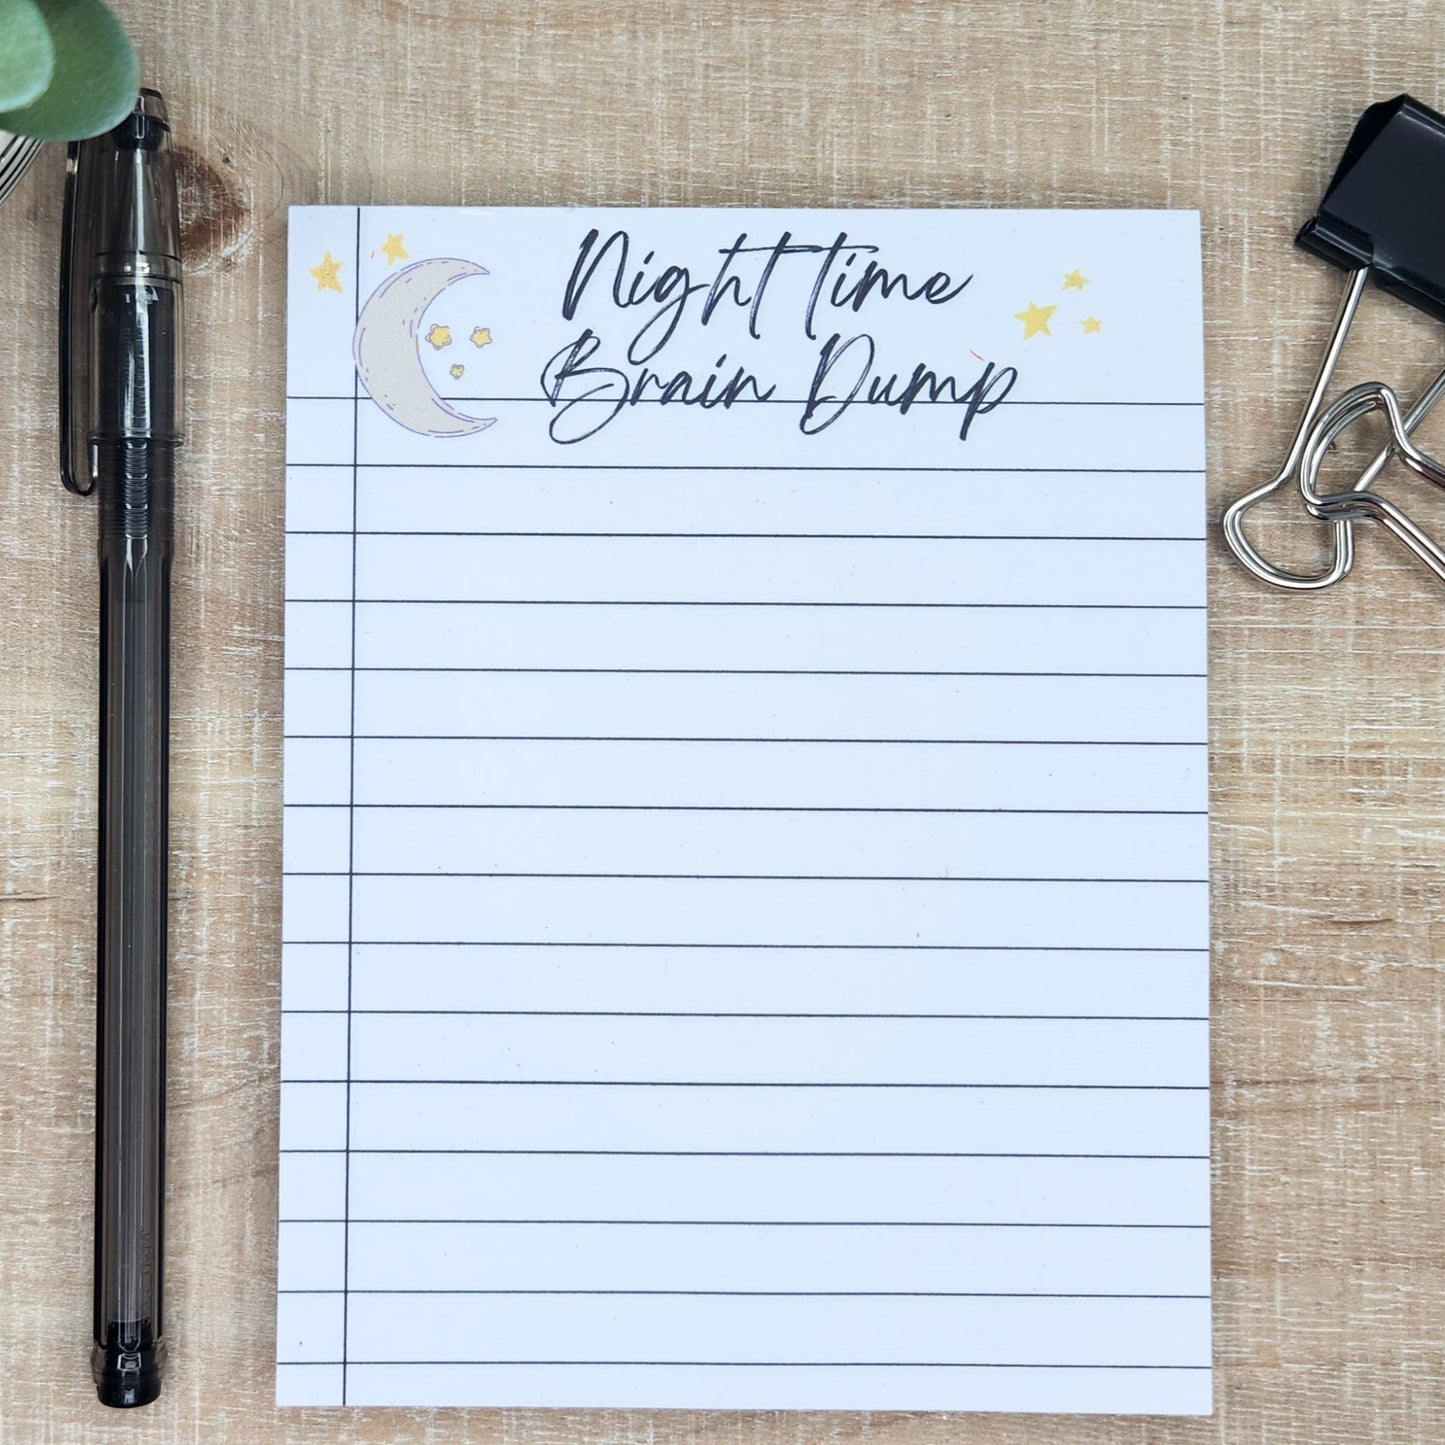 Night time
Brain Dump